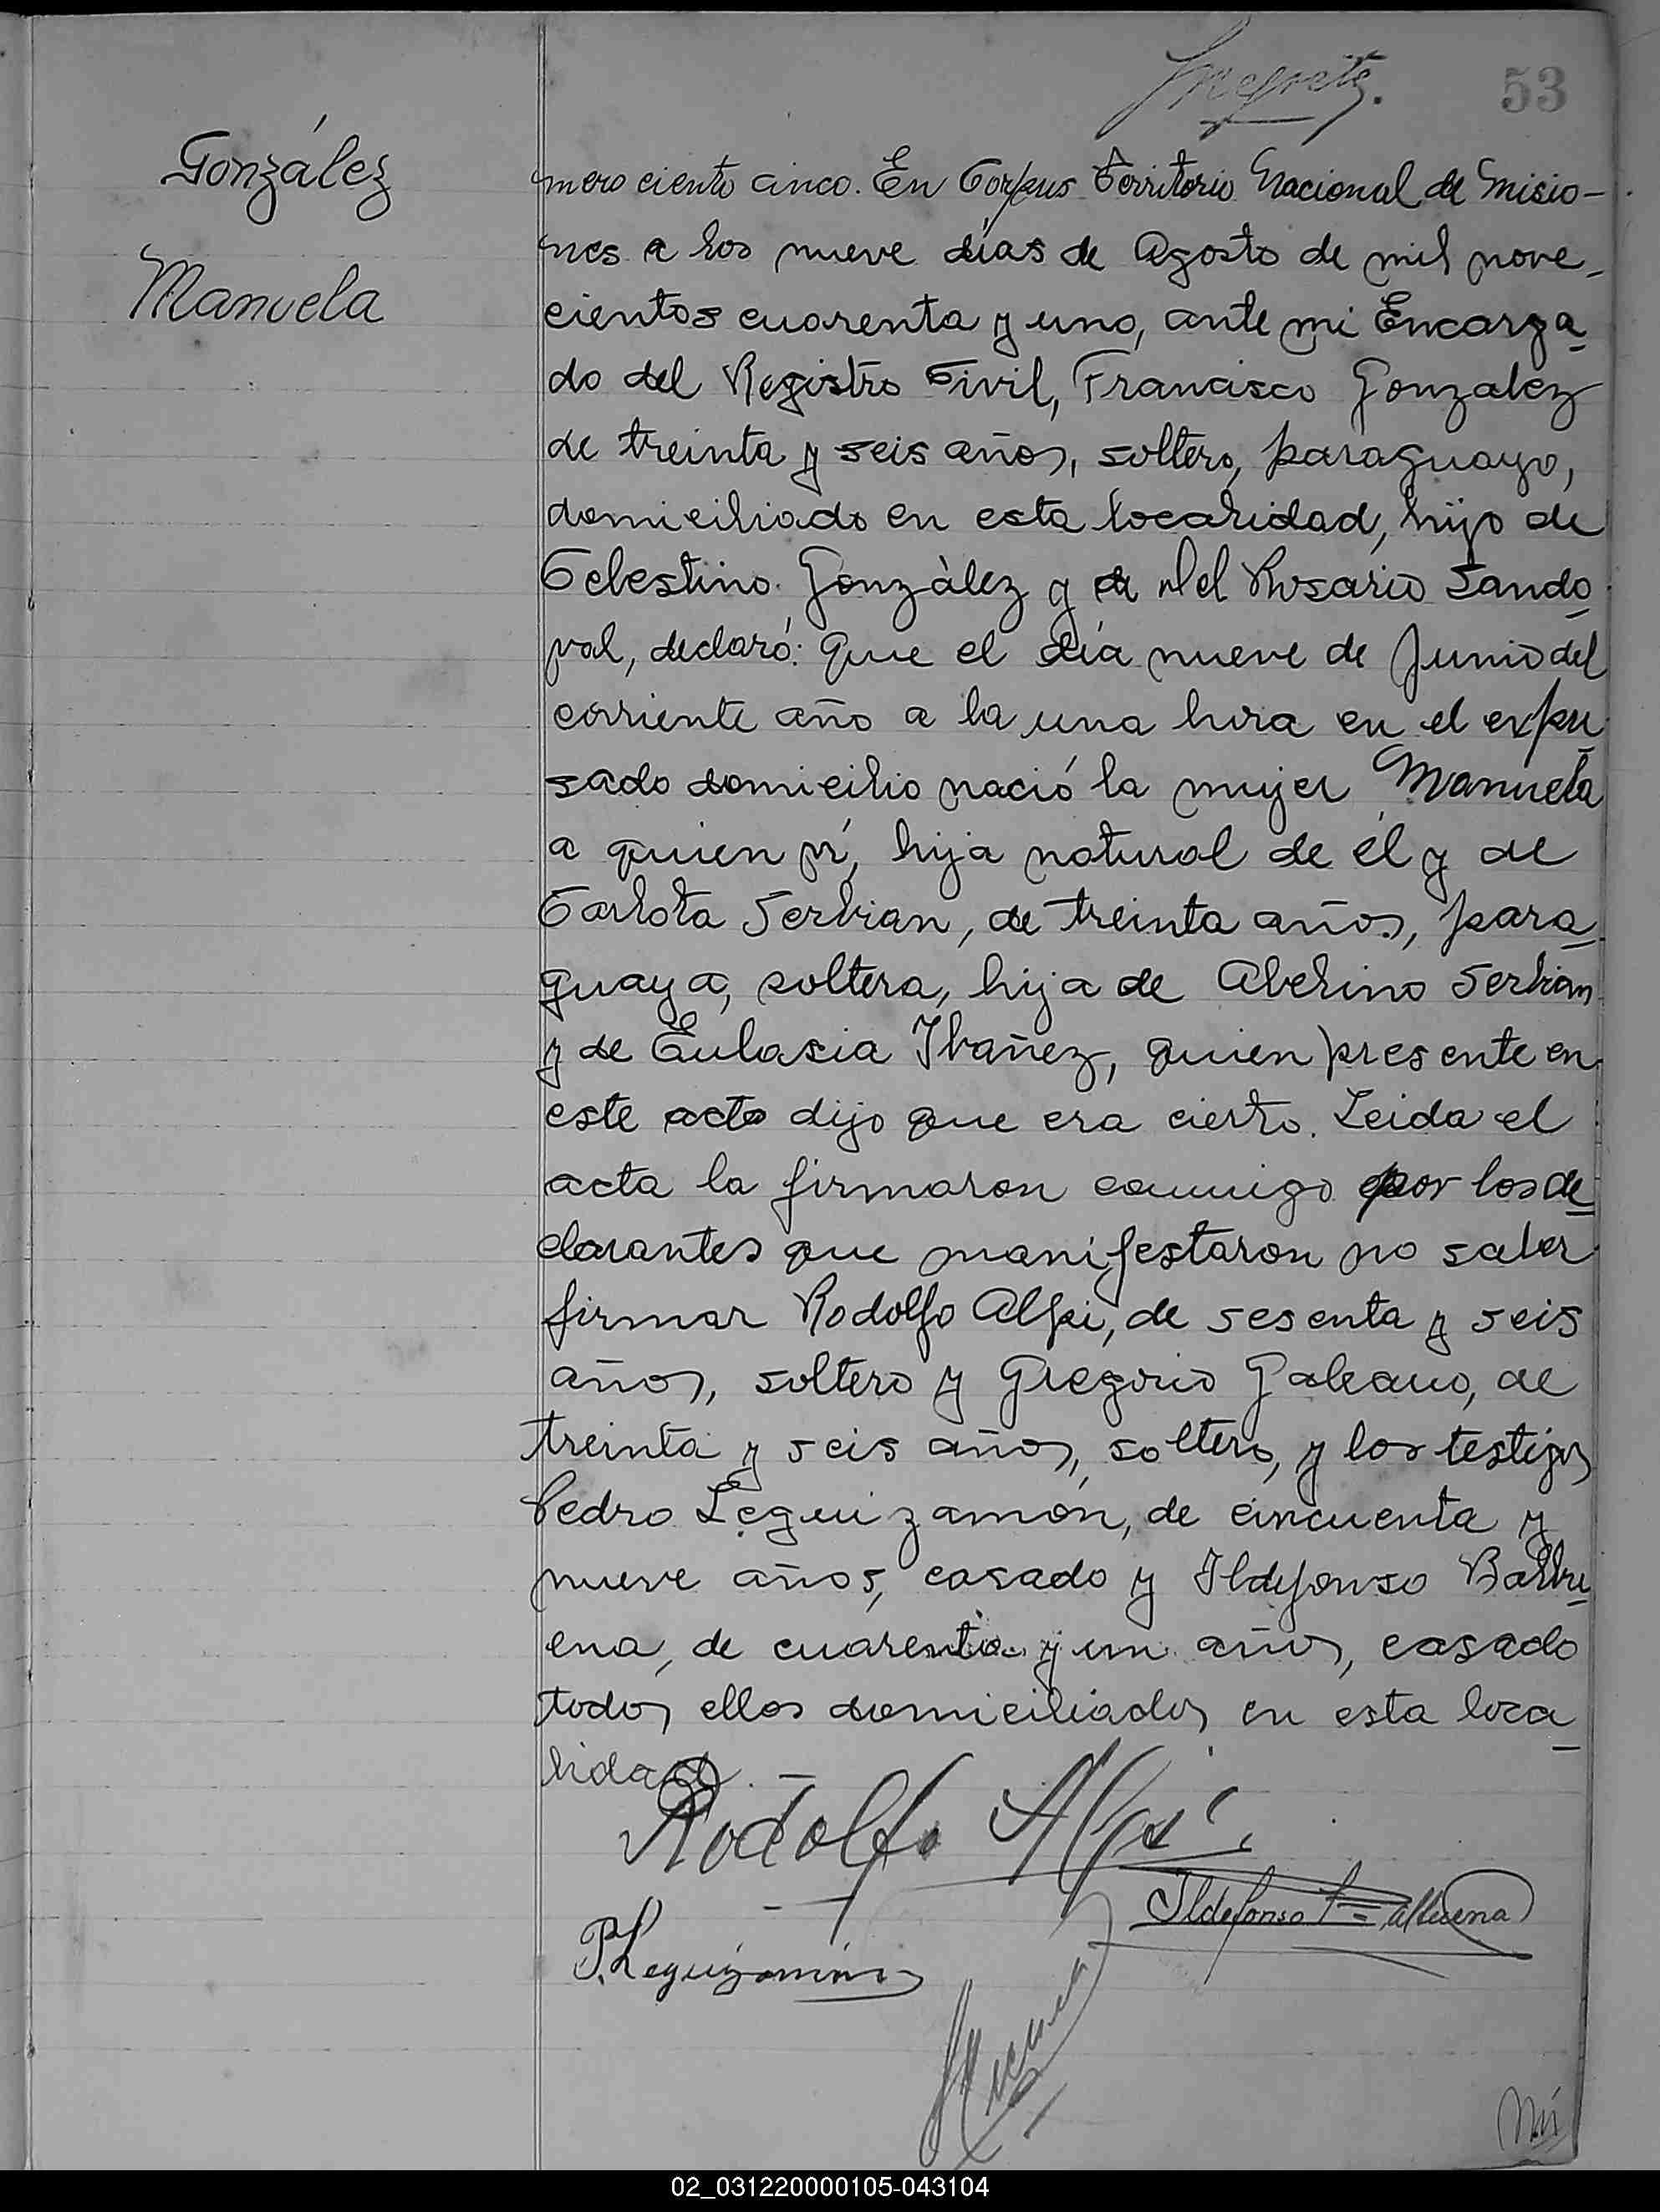 53
González
Manuela
mero ciento cinco. En Corpus Territorio Nacional de Misio-
nes a los nueve días de Agosto de mil nove-
cientos cuarenta y uno, ante mi Encarga-
do del Registro Civil, Francisco Gonzalez
de treinta y seis años, soltero, paraguayo,
domiciliado en esta localidad, hijo de
Celestino González y de Del Rosario Sando-
val, declaró: que el día nueve de Junio del
corriente año a la una hora en el expre-
sado domicilio nació la mujer Manuela
a quien ví, hija natural de él y de
Carlota Serbian, de treinta años, para-
guaya, soltera, hija de Abelino Serbian
y de Eulasia Ibañez, quien presente en
este acto dijo que era cierto. Leida el
acta la firmaron conmigo por los de-
clarantes que manifestaron no saber
firmar Rodolfo Alpi, de sesenta y seis
años, soltero y Gregorio Galeano, de
treinta y seis años, soltero, y los testigos
Pedro Leguizamón, de cincuenta y
nueve años, casado y Ildefonso Balbu-
ena, de cuarenta y un años, casado
todos ellos domiciliados en esta loca-
lidad.-
Rodolfo Alpi
Ildefonso Balbuena
P. Leguizamón
Nú
02_031220000105-043104